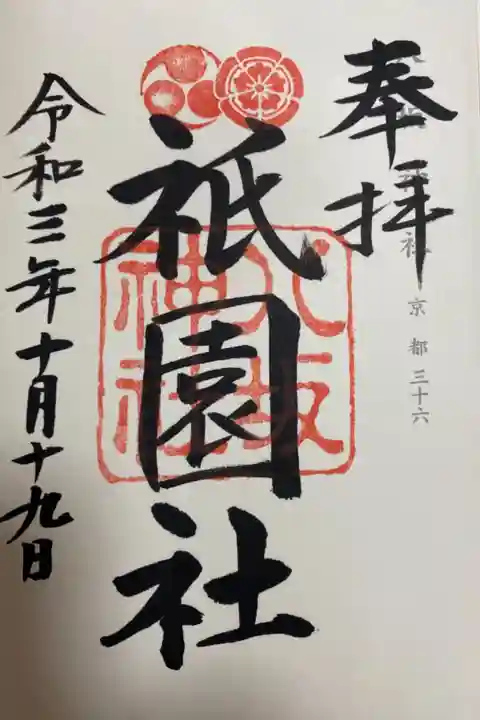 奉拝
八坂神社
京都 三十六
祇園社
八坂神社
令和三年十月十九日